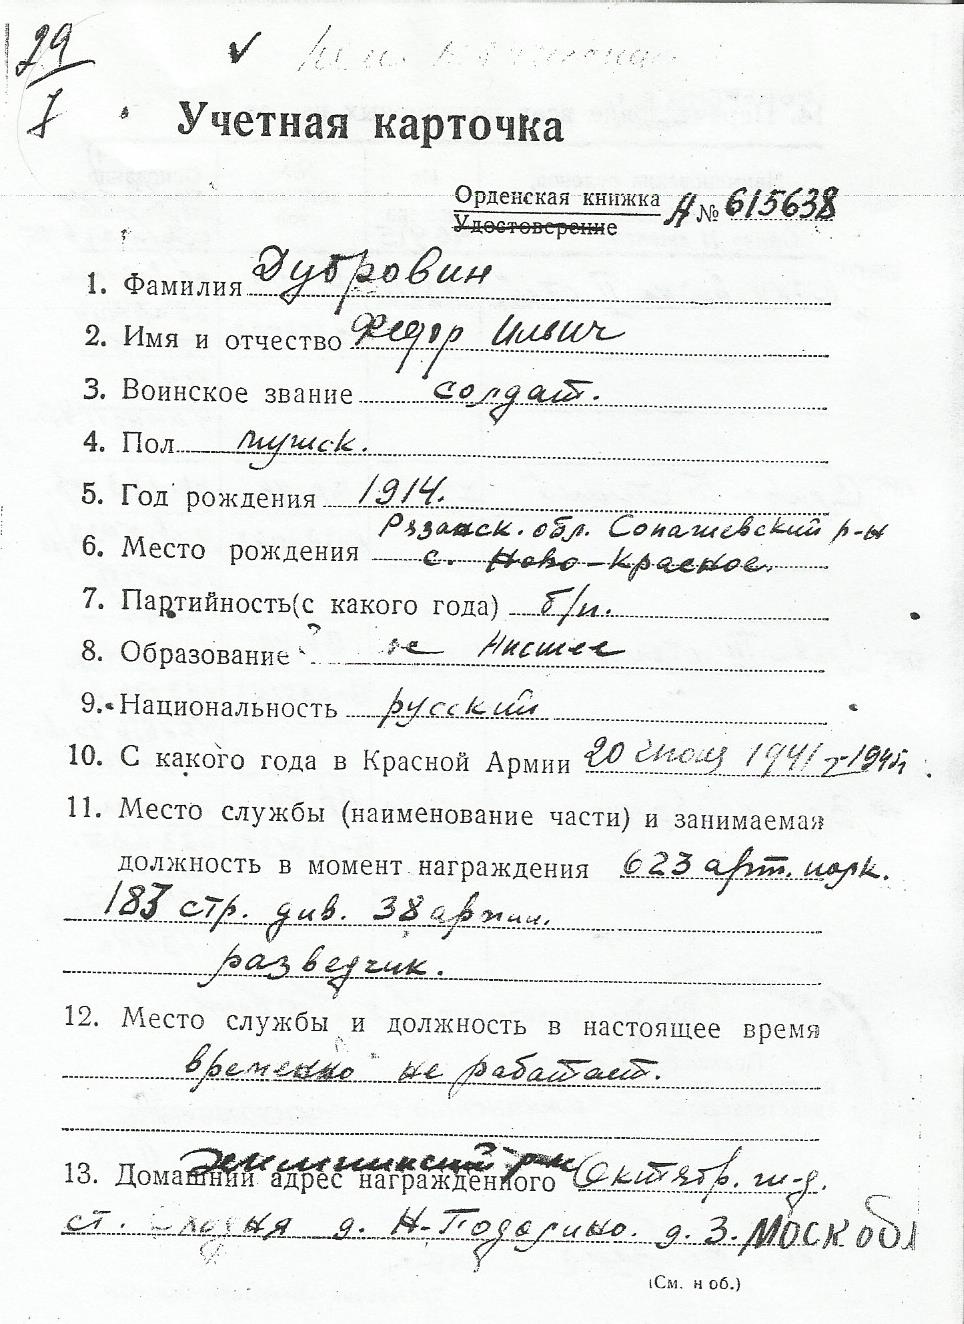 29
I
Учетная карточка
Орденская книжка А № 615638
Удостоверение
1. Фамилия Дубровин
2. Имя и отчество Федор Ильич
3. Воинское звание солдат.
4. Пол мужск.
5. Год рождения 1914.
Рязанск. обл. Сопажевский р-н
6. Место рождения с. Ново-Красное.
7. Партийность(с какого года) б/п.
8. Образование низшее
9. Национальность русский
10. С какого года в Красной Армии 20 июля 1941 - 1945
11. Место службы (наименование части) и занимаемая
должность в момент награждения 623 арт. полк.
183 стр. див. 38 армии.
разведчик.
12. Место службы и должность в настоящее время
временно не работает.
13. Домашний адрес награжденного Октябр. ж-д.
ст. д. Н-Подолино. д. 3. Моск обл
(См. н об.)